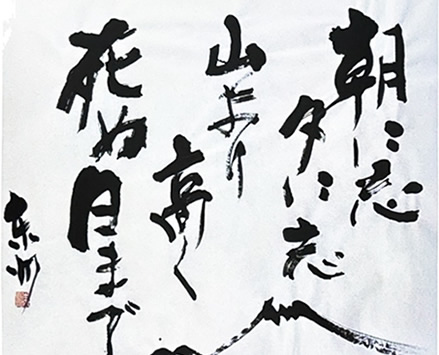 朝に志
夕に志
山より
高く
死ぬ
日まで
東州